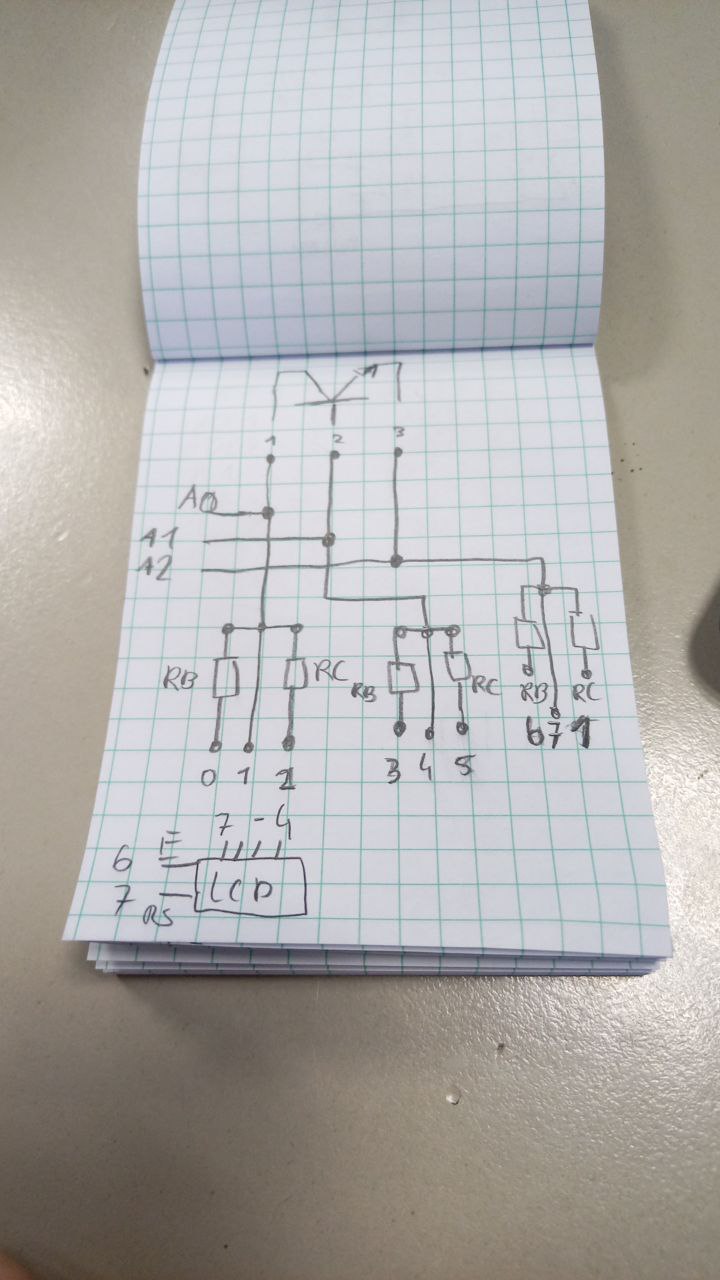 1 2 3
A0
A1
A2
RB RC
RB RC
RB RC
0 1 2
3 4 5
6 7 1
7 - 4
6 E
7 RS
LCD